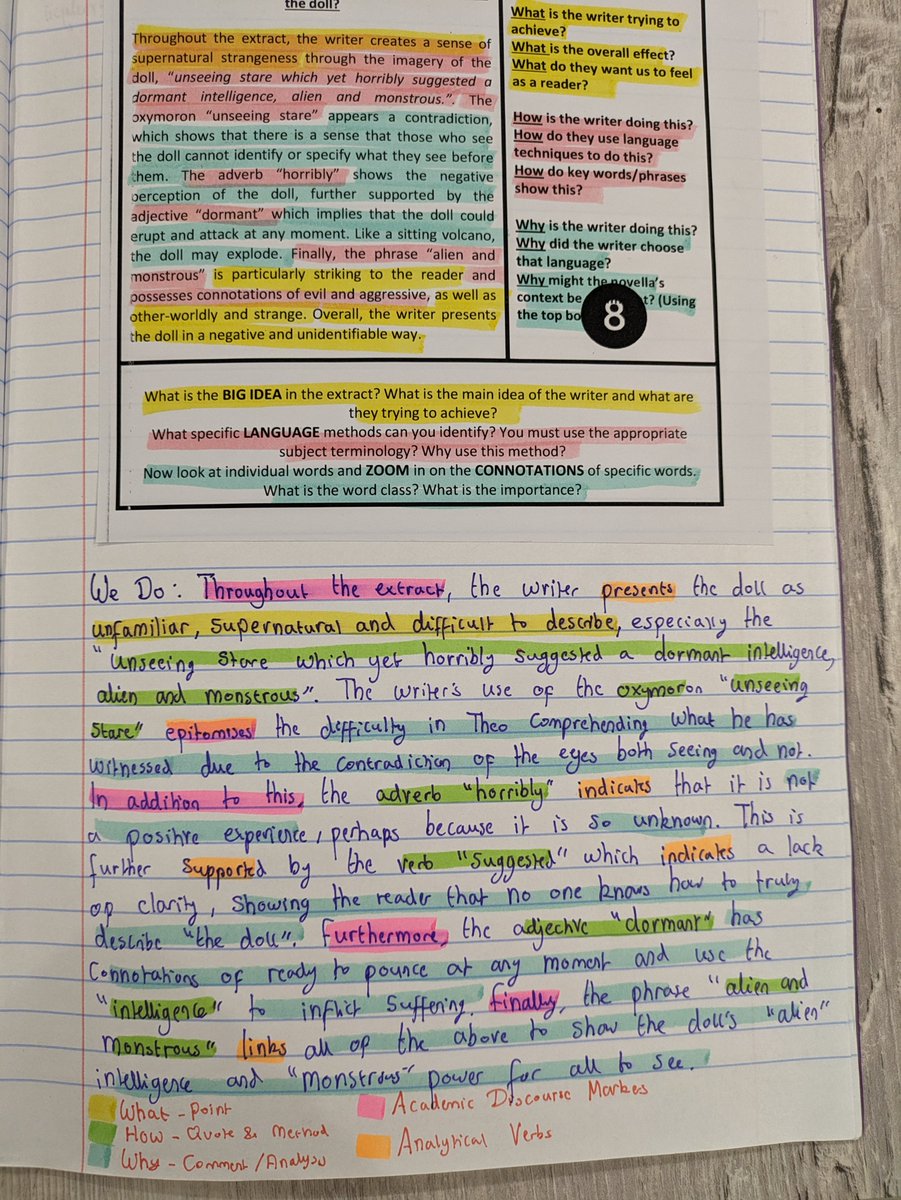 the doll?
Throughout the extract, the writer creates a sense of
supernatural strangeness through the imagery of the
doll, "unseeing stare which yet horribly suggested a
dormant intelligence, alien and monstrous.". The
oxymoron "unseeing stare" appears a contradiction,
which shows that there is a sense that those who see
the doll cannot identify or specify what they see before
them. The adverb "horribly" shows the negative
perception of the doll, further supported by the
adjective "dormant" which implies that the doll could
erupt and attack at any moment. Like a sitting volcano,
the doll may explode. Finally, the phrase "alien and
monstrous" is particularly striking to the reader and
possesses connotations of evil and aggressive, as well as
other-worldly and strange. Overall, the writer presents
the doll in a negative and unidentifiable way.
What is the writer trying to
achieve?
What is the overall effect?
What do they want us to feel
as a reader?
How is the writer doing this?
How do they use language
techniques to do this?
How do key words/phrases
show this?
Why is the writer doing this?
Why did the writer choose
that language?
Why might the novella's
context be t? (Using
the top bo
8
What is the BIG IDEA in the extract? What is the main idea of the writer and what are
they trying to achieve?
What specific LANGUAGE methods can you identify? You must use the appropriate
subject terminology? Why use this method?
Now look at individual words and ZOOM in on the CONNOTATIONS of specific words.
What is the word class? What is the importance?
We Do: Throughout the extract, the writer presents the doll as
unfamiliar, supernatural and difficult to describe, especially the
"unseeing stare which yet horribly suggested a dormant intelligence,
alien and monstrous". The writer's use of the oxymoron "unseeing
stare" epitomises the difficulty in Theo comprehending what he has
witnessed due to the contradiction of the eyes both seeing and not.
In addition to this, the adverb "horribly" indicates that it is not
a positive experience, perhaps because it is so unknown. This is
further supported by the verb "suggested" which indicates a lack
of clarity, showing the reader that no one knows how to truly
describe "the doll". Furthermore, the adjective "dormant" has
connotations of ready to pounce at any moment and use the
"intelligence" to inflict suffering. Finally, the phrase "alien and
monstrous" links all of the above to show the doll's "alien"
intelligence and "monstrous" power for all to see.
What - Point
How - Quote & Method
Why - Comment/Analysis
Academic Discourse Markers
Analytical Verbs